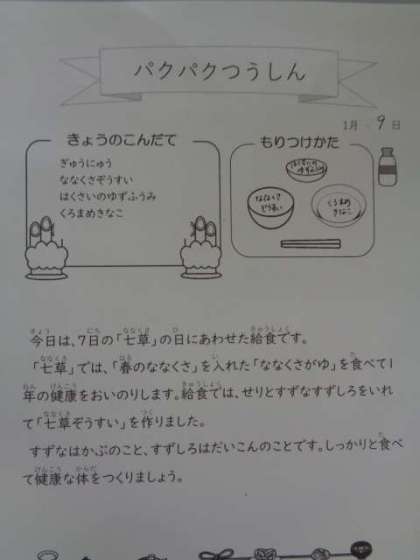 パクパクつうしん
1月 9日
きょうのこんだて
ぎゅうにゅう
ななくさぞうすい
はくさいのゆずふうみ
くろまめきなこ
もりつけかた
はくさいの
ゆずふうみ
ななくさ
ぞうすい
くろまめ
きなこ
今日は、7日の「七草」の日にあわせた給食です。
「七草」では、「春のななくさ」を入れた「ななくさがゆ」を食べて1
年の健康をおいのりします。給食では、せりとすずなすずしろをいれ
て「七草ぞうすい」を作りました。
すずなはかぶのこと、すずしろはだいこんのことです。しっかりと食べ
て健康な体をつくりましょう。